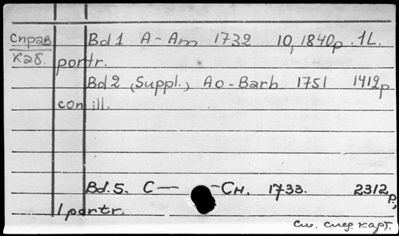 Справ
Каб.
Bd 1 A - Am 1732 10, 1840p. 1L.
portr.
Bd 2 (Suppl.) Ao - Barb 1751 1412p
con ill.
Bd. 5. C — -CH. 1733. 2312p,
1 portr.
См. след. карт.